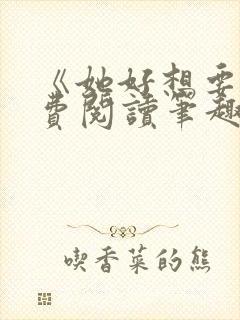 《她好想要
費閱讀筆趣
喫香菜的熊